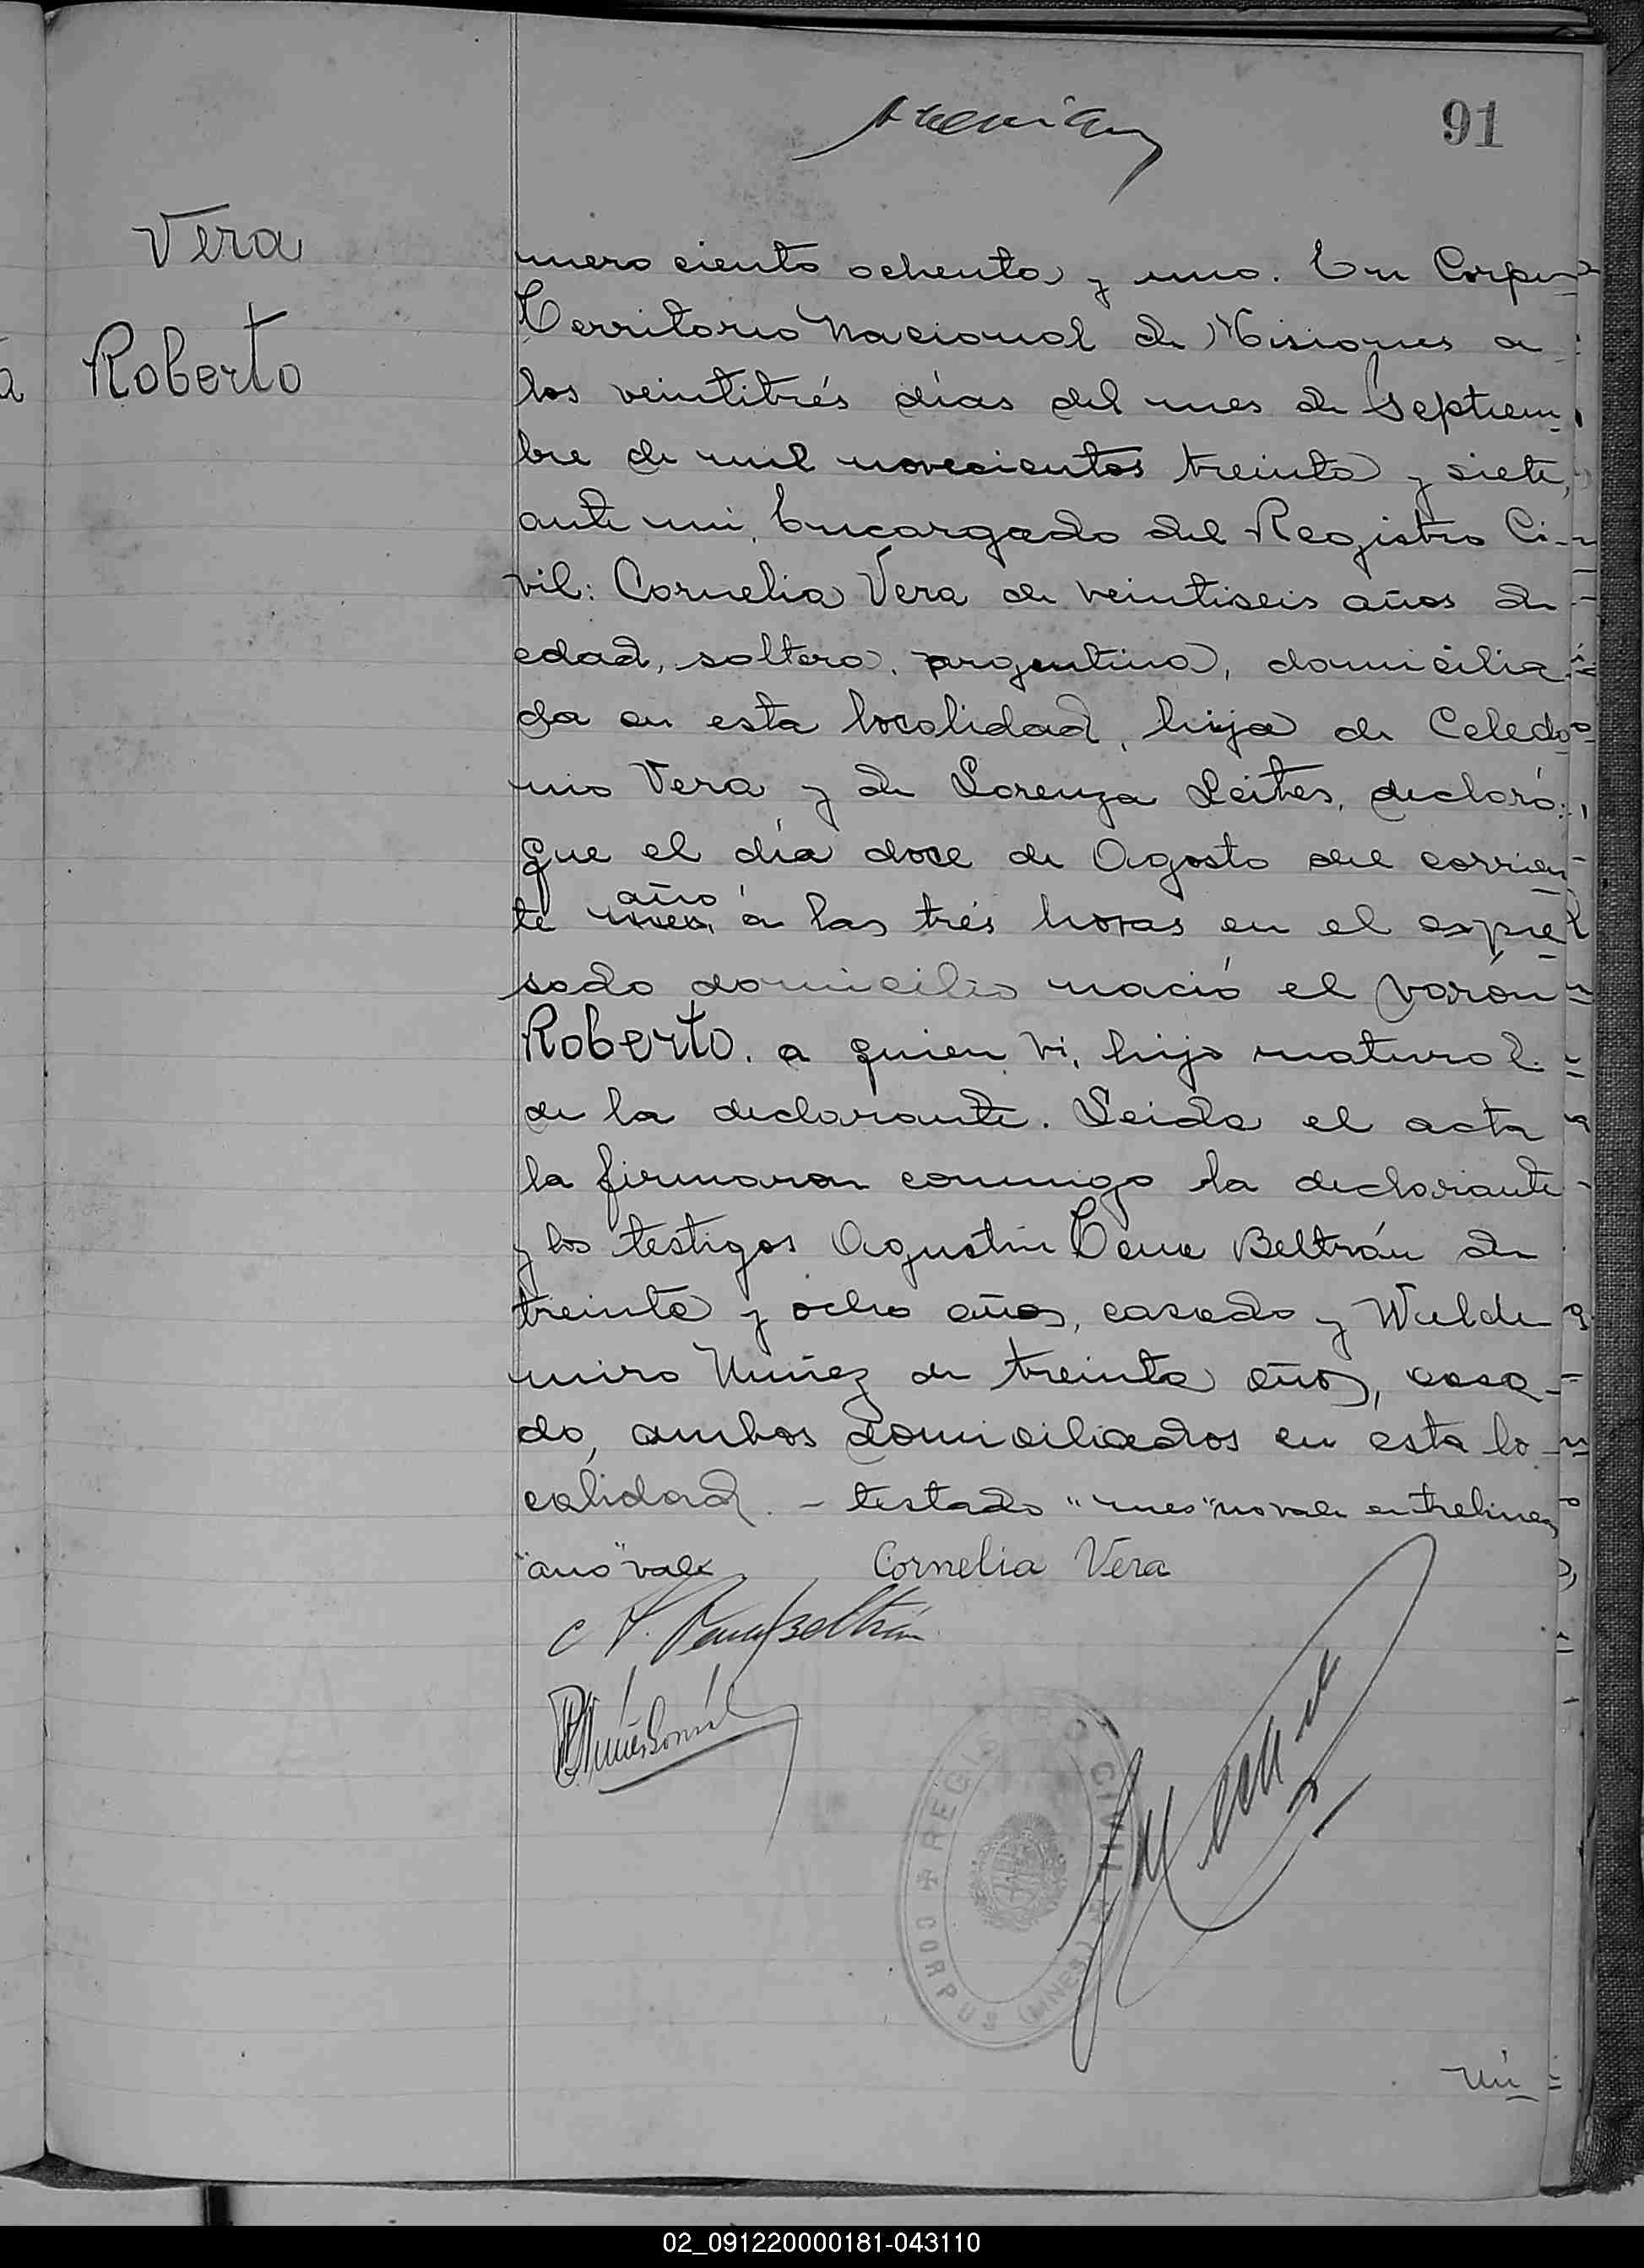 91
Vera
Roberto
mero ciento ochenta y uno. En Corpus
Territorio Nacional de Misiones a
los veintitrés días del mes de Septiem-
bre de mil novecientos treinta y siete,
ante mi, Encargado del Registro Ci-
vil: Cornelia Vera de veintiseis años de
edad, soltera, argentina, domicilia-
da en esta localidad, hija de Celedo-
nio Vera y de Lorenza Leites, declaró:
que el día doce de Agosto del corrien-
año
te mes, a las trés horas en el expre-
sado domicilio nació el varón
Roberto. a quien vi, hijo natural
de la declarante. Leida el acta
la firmaron conmigo la declarante
y los testigos Agustin Tene Beltrán de
treinta y ocho años, casado y Walde
miro Nuñez de treinta años, casa-
do, ambos domiciliados en esta lo-
calidad. - testado "mes" no vale entrelinea
"año" vale
Cornelia Vera
REGISTRO CIVIL
CORPUS (MNES)
Nú-
02_091220000181-043110